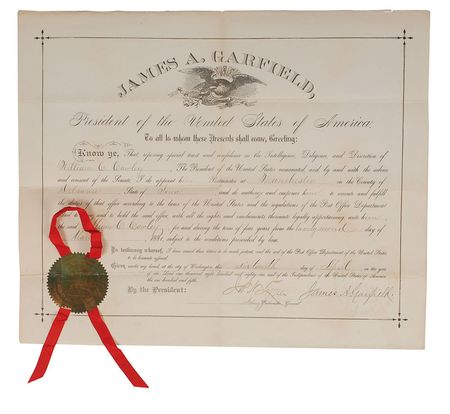 JAMES A. GARFIELD,
President of the United States of America,
To all to whom these Presents shall come, Greeting:
Know ye, That reposing special trust and confidence in the Intelligence, Diligence, and Discretion of
William C. I, The President of the United States, have nominated, and, by and with the advice
and consent of the Senate, do appoint him Postmaster at in the County of
Delaware State of Iowa and do authorize and empower him to execute and fulfill
the duties of that office according to the laws of the United States and the regulations of the Post Office Department
and to hold the said office, with all the rights and emoluments thereunto legally appertaining, unto him
the said William C. for and during the term of four years from the day of
1881, subject to the conditions prescribed by law.
In testimony whereof, I have caused these letters to be made patent, and the seal of the Post Office Department of the United States
to be hereunto affixed.
Given under my hand, at the city of Washington, the day of in the year
of our Lord one thousand eight hundred and eighty one and of the Independence of the United States of America
the one hundred and fifth.
By the President:
James A Garfield
Postmaster General